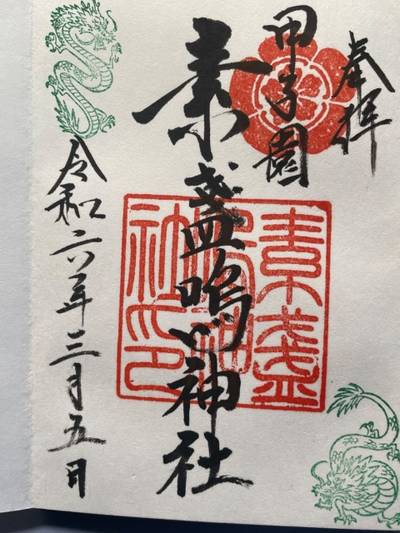 奉拝
甲子園
素盞嗚神社
令和六年三月五日
素盞
嗚神
社印